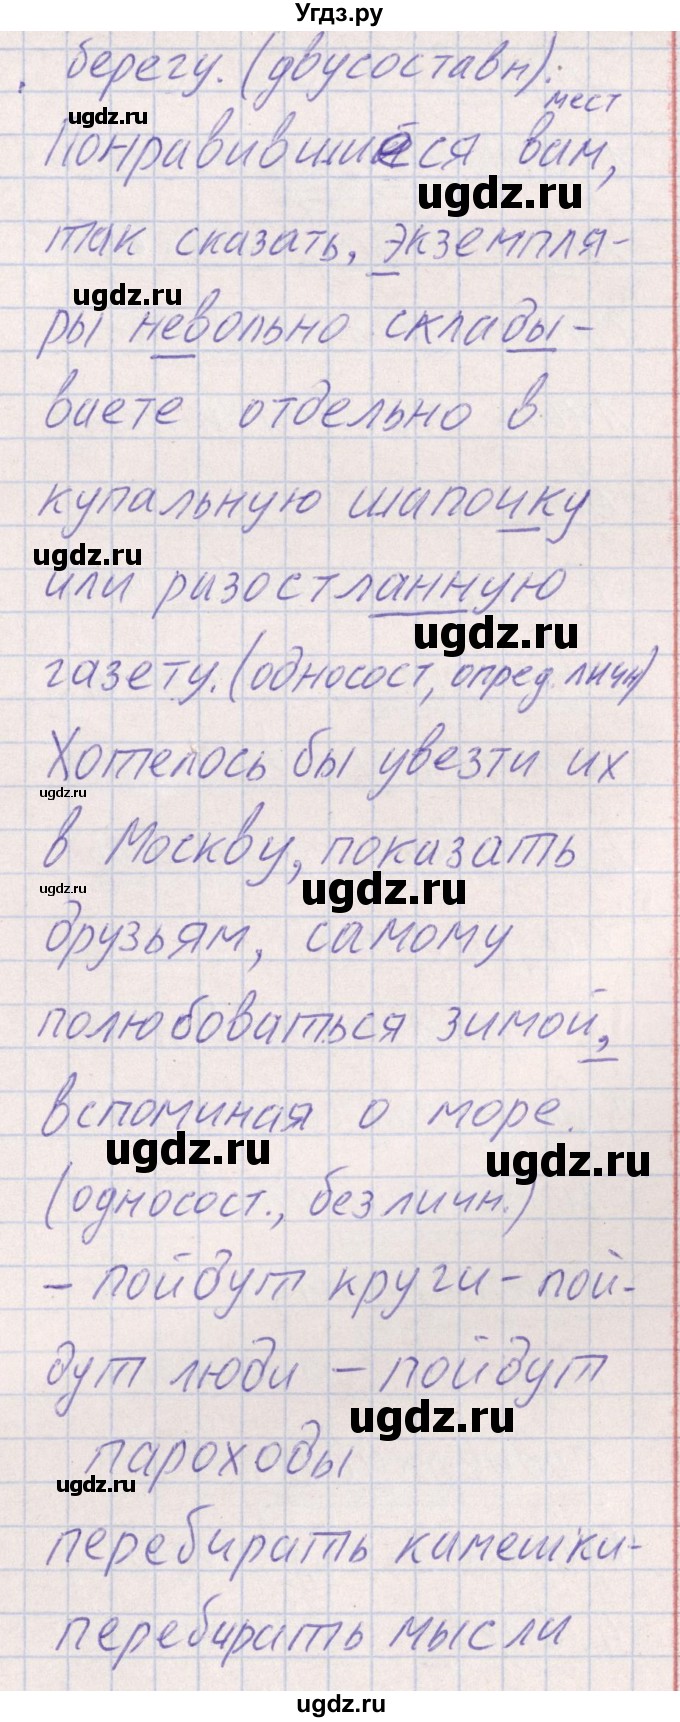 Угдз.ру
берегу. (двусоставн).
ugdz.ru
мест
Понравившиеся вам,
ugdz.ru
так сказать, экземпля-
ugdz.ru
ры невольно склады-
ваете отдельно в
купальную шапочку
ugdz.ru
или разостланную
ugdz.ru
газету. (односост, опред личн)
Хотелось бы увезти их
ugdz.ru
в Москву, показать
ugdz.ru ugdz.ru
друзьям, самому
полюбоваться зимой,
вспоминая о море.
ugdz.ru ugdz.ru
(односост., безличн.)
- пойдут круги - пой-
дут люди - пойдут
ugdz.ru
пароходы
ugdz.ru
перебирать камешки-
перебирать мысли
ugdz.ru